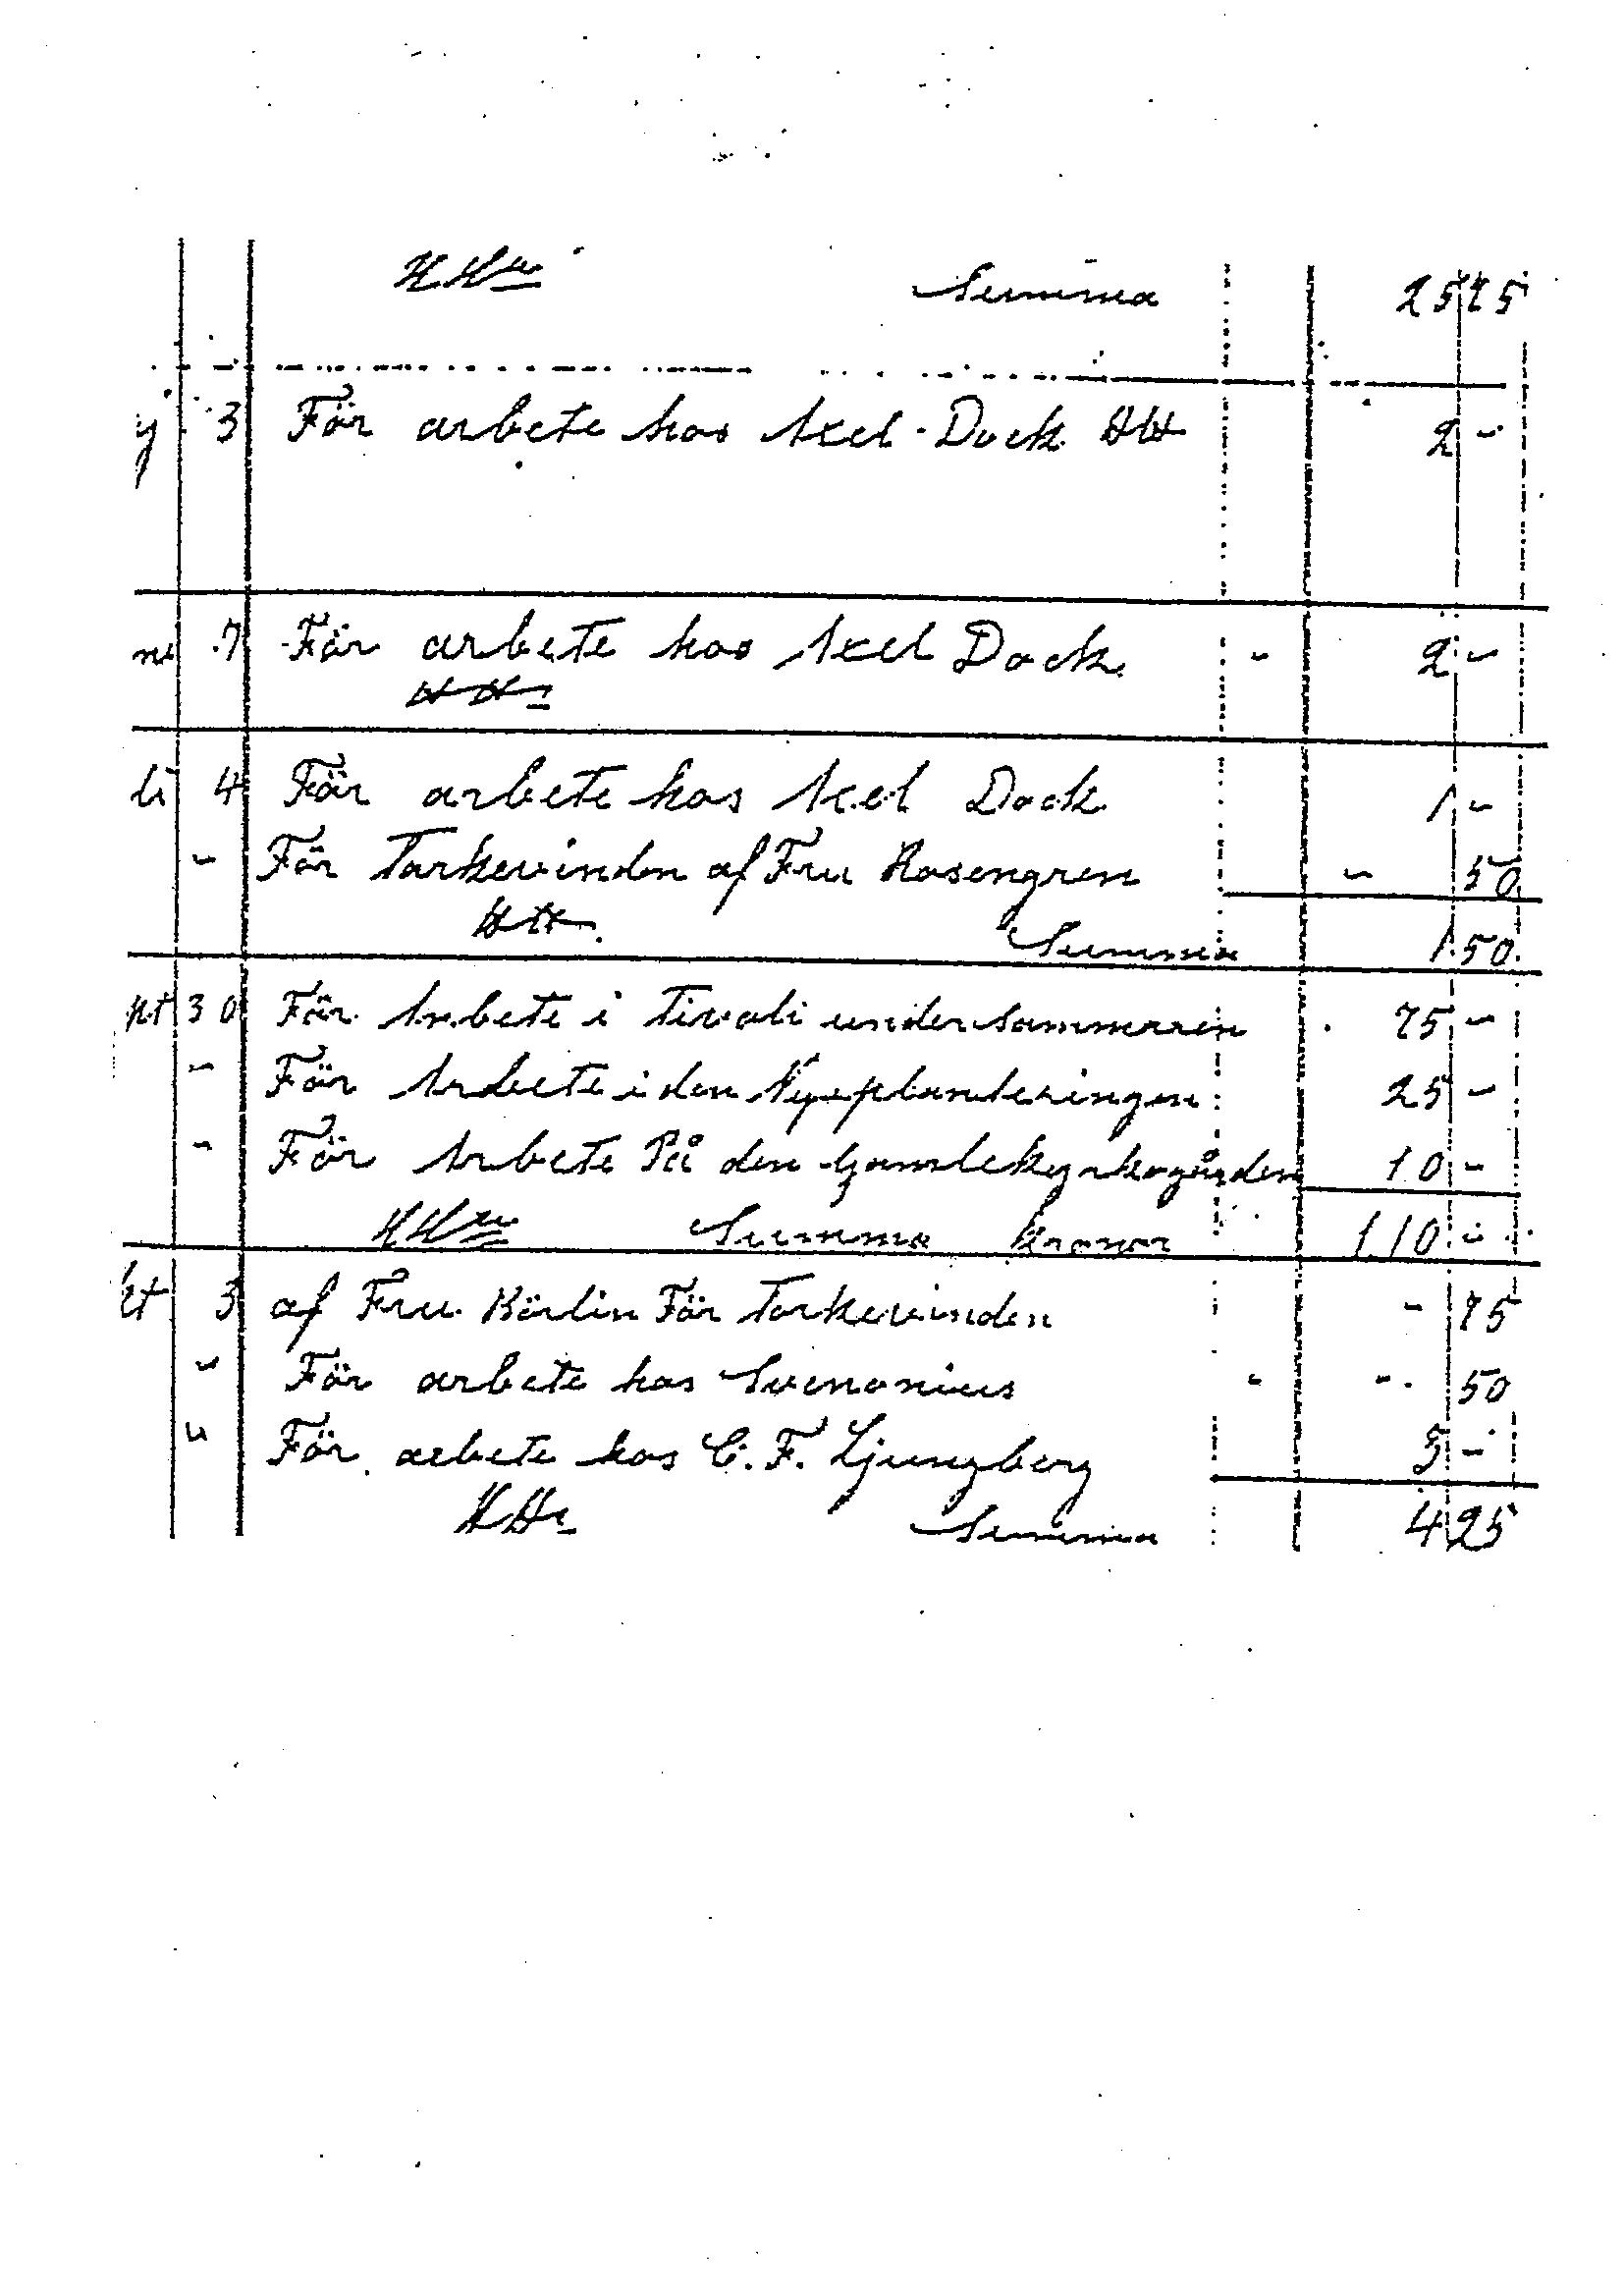 HHn Summa 25 75
j 3 För arbete hos Axel Dock HH 2 -
ni 7 För arbete hos Axel Dock - 2 -
HH
li 4 För arbete hos Axel Dock 1 -
- För Torkevinden af Fru Rosengren - 50
HH. Summa 1 50
pt 30 För Arbete i Tivoli under sommerren 75 -
- För Arbete i den Nyeplanteringen 25 -
- För Arbete På den Gamlekyrkogården 10 -
HHn Summa Kronor 110 -
kt 3 af Fru Börlin För Torkevinden - 75
" För arbete hos Svenonius - - 50
" För arbete hos C. F. Ljungberg 3 -
HHn Summa 4 25